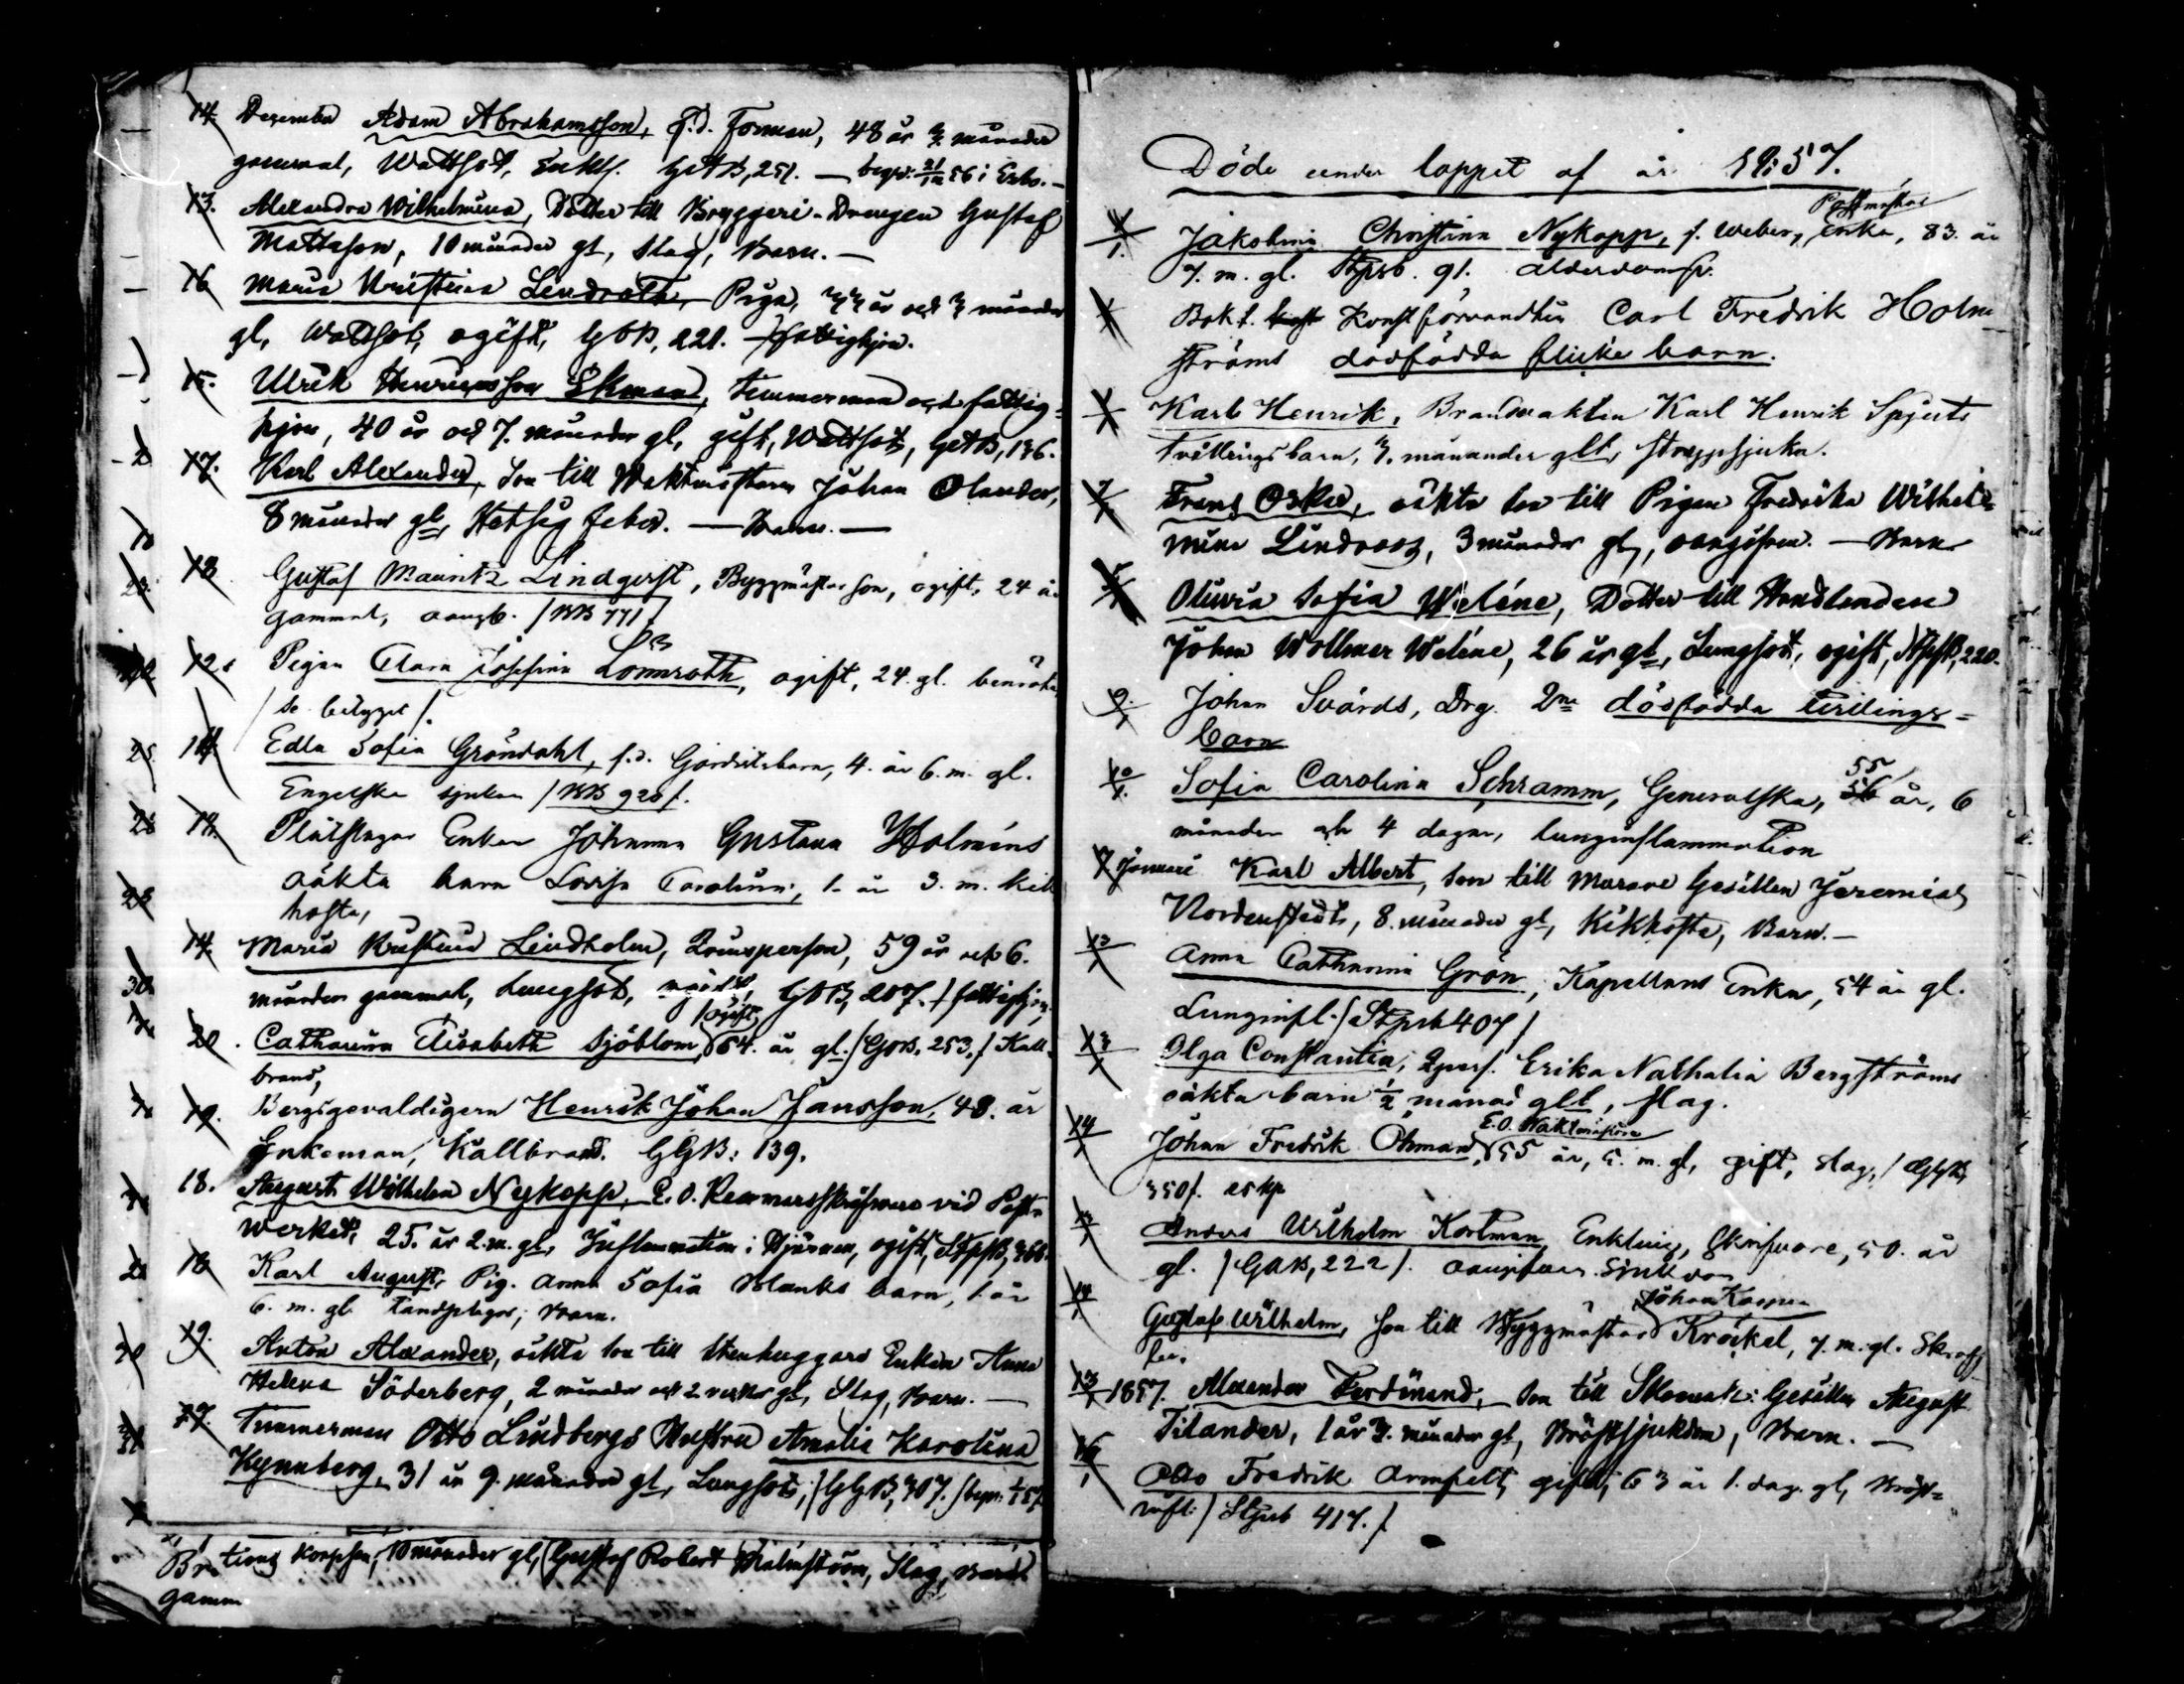 14. December Adam Abrahamsson, f.d. Forman, 48 år 3 månader
gammal, Wattsot, Enkl. G.A.B, 251. — begr: 21/12 56 i Esbo. —
13. Alexandra Wilhelmina, Dotter till Bryggeri-Drengen Gustaf
Mattsson, 10 månader gl, Slag, Barn. —
16 Maria Kristina Lindroth, Piga, 33 år och 3 månader
gl, Wattsot, ogift, GBB, 221. — fattighjon.
15. Ulrik Henriksson Ekman, timmerman och fattig=
hjon, 40 år och 7. månader gl, gift, Wattsot, GAB, 136.
17. Karl Alexander, Son till Waktmästaren Johan Olander,
8 månader gl, Hetsig feber. — Barn. —
18. Gustaf Mauritz Lindqvist, Byggmästar son, ogift, 24 år
gammal, /BB 771/
12. Pigan Clara Josefina Lönnroth, ogift, 24. gl.
/se betyget/.
14 Edla Sofia Gröndahl, f.d. Gardistbarn, 4. år 6. m. gl.
Engelska sjukan /BB 920/.
18. Plåtslagar Enkan Johanna Gustava Holméns
oäkta barn Lovisa Carolina, 1. år 3. m. kik
hosta,
14. Maria Kristina Lindholm, Qvinsperson, 59 år och 6.
månader gammal, Lungsot, ogift, GBB, 207. / fattighjon
20. Catharina Elisabeth Sjöblom, /ogift/ 64. år gl. /GGB, 253./ Kall=
brand,
19. Bergsgevaldigern Henrik Johan Jansson, 48. år
Enkeman, Kallbrand. GGB: 139.
18. August Wilhelm Nykopp, E.O. Kammarskrifvare vid Post=
werket, 25. år 2. m. gl, Inflammation i Hjernan, ogift, StpsB, 366.
18 Karl August, Pig. Anna Sofia Blanks barn, 1. år
6. m. gl. tandplågor, Barn.
19. Anton Alexander, oäkta son till Stenhuggare Enkan Anna
Helena Söderberg, 2 månader och 2 veckor gl, Slag, Barn. —
27. Timmerman Otto Lindbergs Hustru Amalia Karolina
Kynnberg, 31 år 9. månader gl, Lungsot, /GGB, 307./
10 månader gl, (Gustaf Robert Malmström, Slag, Barn.
gamm
Döde under loppet af år 1857.
4/1. Jakobina Christina Nykopp, f. Weber, Postmästar Enka, 83. år
7. m. gl. Stpsb. 91. ålderdomssv.
Bokt. Konstförvandten Carl Fredrik Holm
ströms dödfödda flicke barn.
Karl Henrik, Brandvakten Karl Henrik Spjuts
tvillingsbarn, 3. månander glt, strypsjuka.
7 Frans Oskar, oäkta son till Pigan Fredrika Wilhel=
mina Lindroos, 3 månader gl, oangifven. — Barn
Olivia Sofia Weléne, Dotter till Handlanden
Johan Wollmer Weléne, 26 år gl, Lungsot, ogift, StpsB, 220.
9. Johan Svärds, Drg. 2ne dödfödda tvillings=
barn
10/1. Sofia Carolina Schramm, Generalska, 55 år, 6
månader och 4 dagar, lunginflammation
7 Januari Karl Albert, son till Murare Gesällen Jeremias
Nordenstedt, 8. månader gl, Kikhosta, Barn. —
13 Anna Catharina Grön, Kapellans Enka, 54 år gl.
Lunginfl. /Stpsb 407/
13 Olga Constantia, Qpers. Erika Nathalia Bergströms
oäkta barn 1/2 månad glt, slag.
14 Johan Fredrik Öhman, E.O. Waktmästare 55 år, 5. m. gl, gift, slag,
350/.
Anders Wilhelm Kortman, Enkling, Skrifvare, 50. år
gl. /GAB, 222/. oangifven sjukdom
14 Gustaf Wilhelm, son till Byggmästar Johan Kasper Kröckel, 7. m. gl.
13 1857. Alexander Ferdinand, Son till Skomak: Gesällen August
Titander, 1 år 3. månader gl, Bröstsjukdom, Barn. —
16/1 Otto Fredrik Armfelt, gift, 63 år 1. dag. gl, Bröst=
infl: /Stpsb 417./